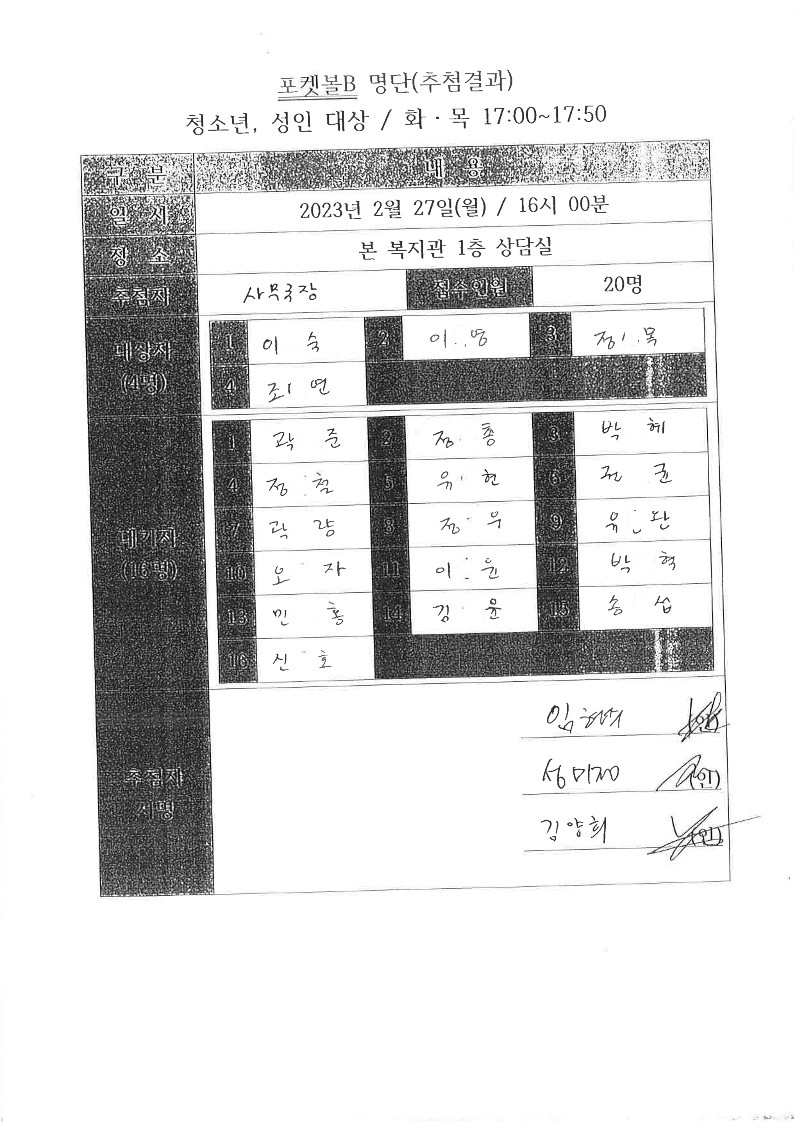 포켓볼B 명단(추첨결과)
청소년, 성인 대상 / 화·목 17:00~17:50
구 분 내 용
일 시 2023년 2월 27일(월) / 16시 00분
장 소 본 복지관 1층 상담실
추첨자 사무국장 접수인원 20명
대상자
(4명)
1 이 숙 2 이 영 3 정 목
4 조 연
대기자
(16명)
1 곽 준 2 정 총 3 박 혜
4 정 철 5 유 현 6 전 균
7 곽 량 8 정 우 9 유 완
10 오 자 11 이 윤 12 박 혁
13 민 홍 14 김 윤 15 송 섭
16 신 호
추첨자
서명
임 (인)
성미정 (인)
김양희 (인)